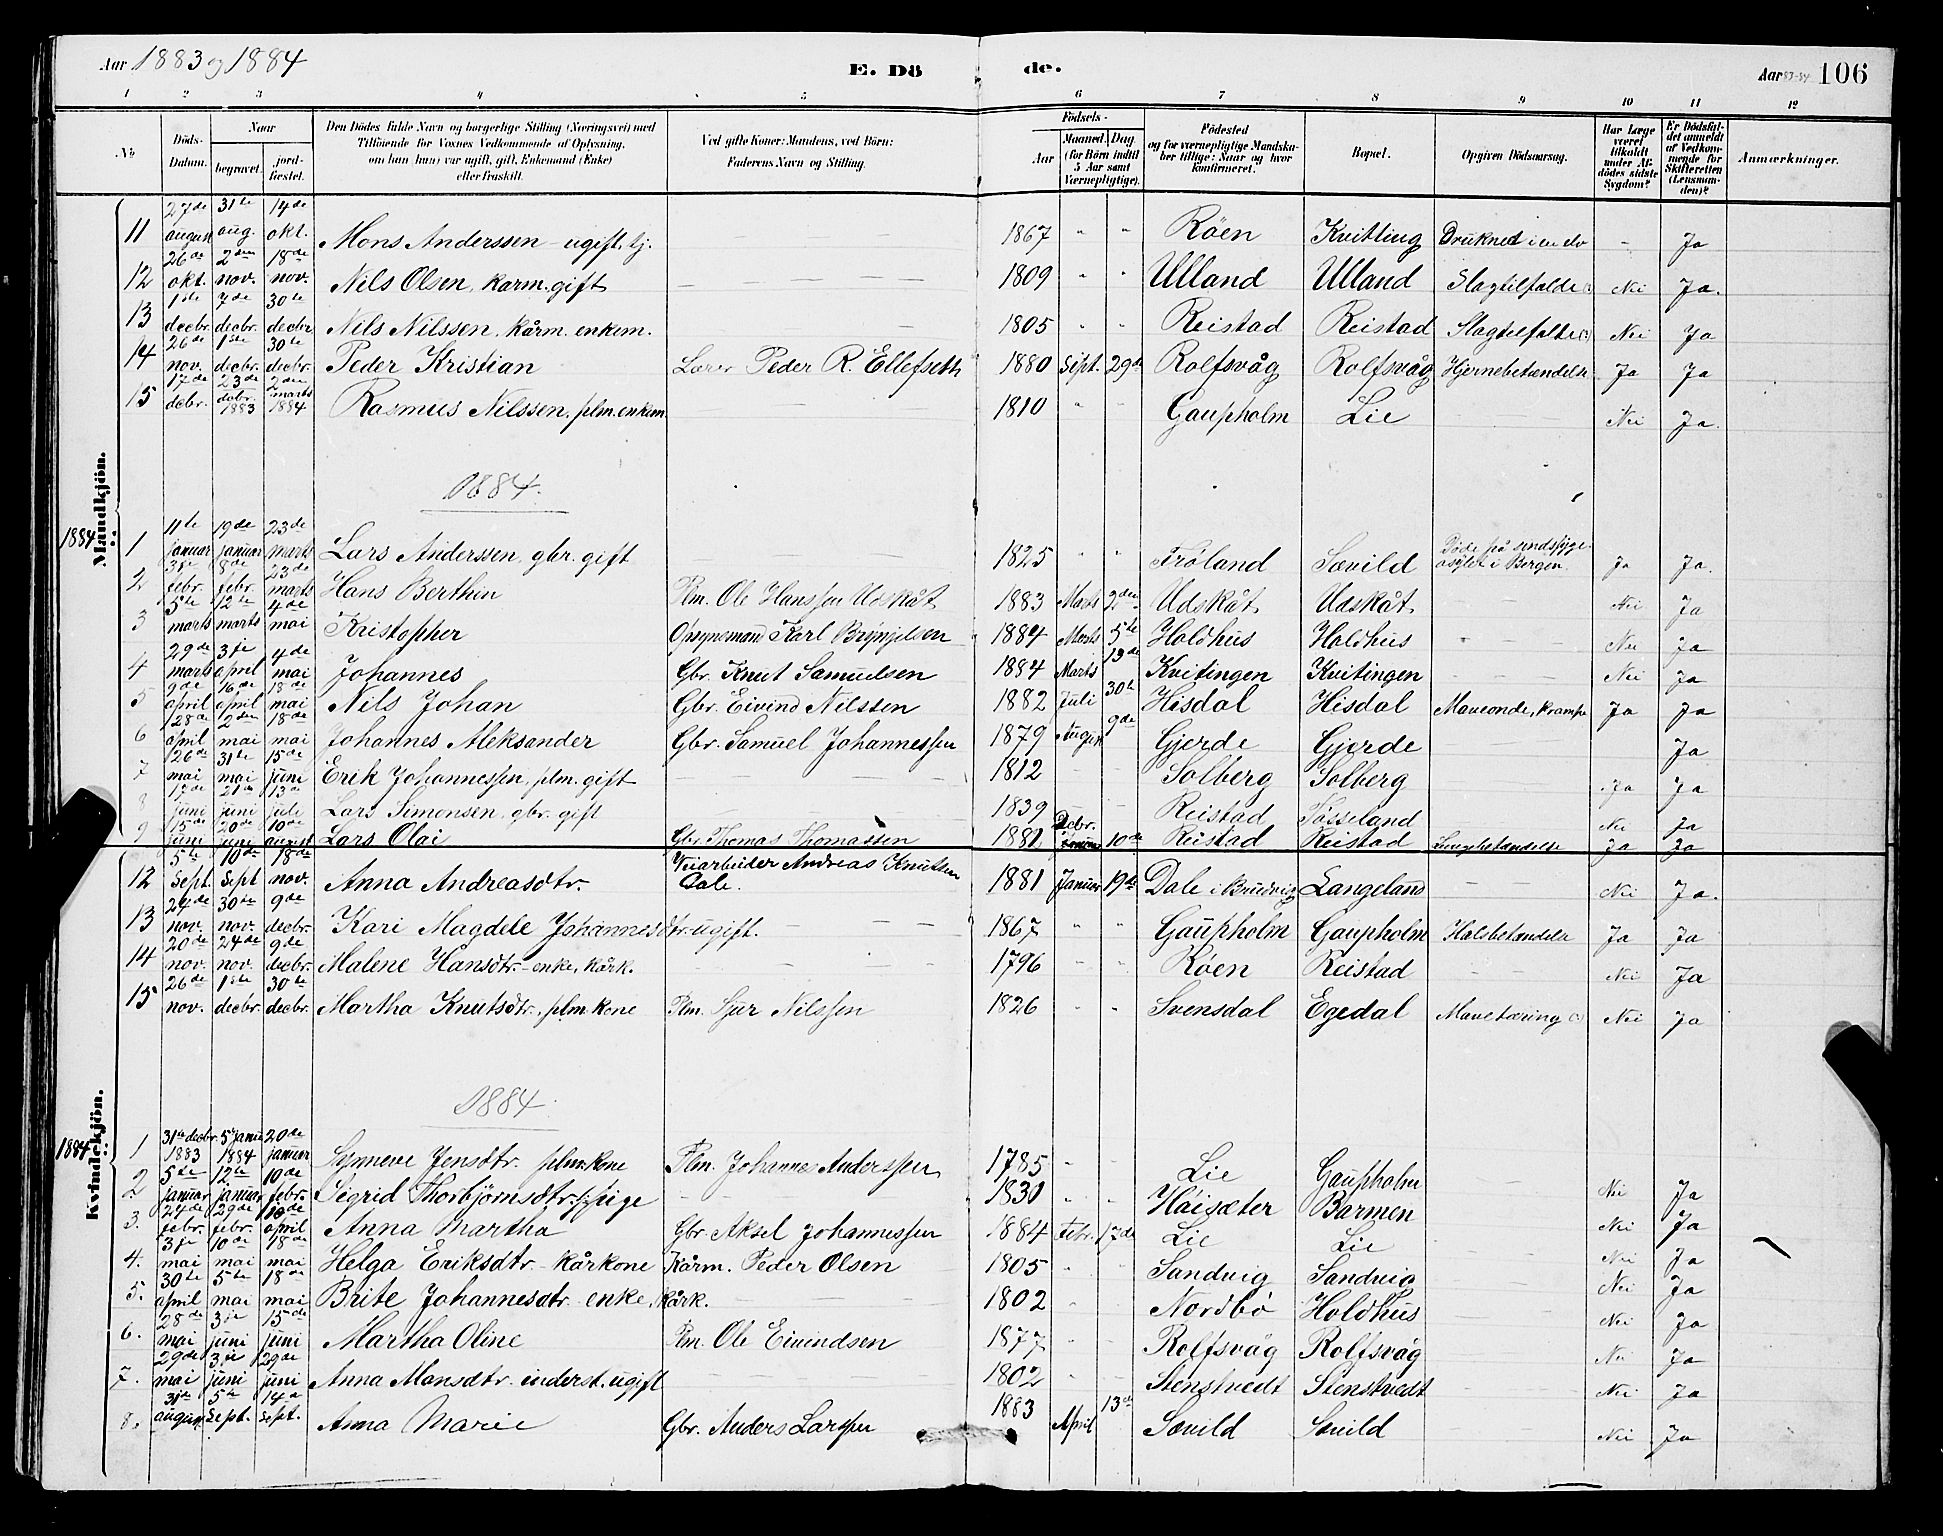 Aar 1883 og 1884 E. Dö de. Aar 83-84 106
1 2 3 4 5 6 7 8 9 10 11 12
No Döds-Datum. Naar begravet. jordfæstet. Den Dödes fulde Navn og borgerlige Stilling (Næringsvei) med Tilföiende for Voxnes Vedkommende af Oplysning, om han (hun) var ugift, gift, Enkemand (Enke) eller fraskilt. Ved gifte Koner: Mandens, ved Börn: Faderens Navn og Stilling. Födsels- Aar Maaned. Dag (for Börn indtil 5 Aar samt Værnepligtige). Födested og for værnepligtige Mandskaber tillige: Naar og hvor konfirmeret. Bopæl. Opgiven Dödsaarsag. Har Læge været tilkaldt under Afdödes sidste Sygdom? Er Dödsfaldet anmeldt af Vedkommende for Skifteretten (Lensmanden)? Anmærkninger.
Mandkjön.
11 27de august 31te aug. 14de okt. Mons Anderssen - ugift, tj. 1867 " " Röen Kvitting Druknet i en elv - Ja
12 26de okt. 2den nov. 18de nov. Nils Olsen, karm. gift 1809 " " Ulland Ulland Slagtilfælde Nei Ja.
13 1ste decbr. 7de decbr. 30te decbr Nils Nilssen, kårm. enkem. 1805 " " Reistad Reistad Slagtilfælde Nei Ja
14 26de nov. 1ste decbr. 30te decbr. Peder Kristian Lærer Peder R. Ellefseth 1880 Sept. 29de Rolfsvåg Rolfsvåg Hjernebetændelse Ja Ja
15 17de decbr. 23de decbr. 1883 2den marts 1884 Rasmus Nilssen, plm. enkem. 1810 " " Gaupholm Lie Nei Ja.
1884.
1884 1 11te januar 19de januar 23de marts Lars Anderssen, gbr. gift 1825 " " Fröland Sævild Döde på sindssygeasylet i Bergen. Ja Ja.
2 3je febr. 8de febr. 23de marts Hans Berthin Plm. Ole Hanssen Udskåt 1883 Marts 2den Udskåt Udskåt Nei Ja
3 5te marts 12te marts 4de mai Kristopher Opsynsmand Karl Brynjelsen 1884 Marts 5te Holdhus Holdhus Nei Ja
4 29de marts 3je april 4de mai Johannes Gbr. Knut Samuelsen 1884 Marts 13de Kvitingen Kvitingen Nei Ja
5 9de april 16de april 18de mai Nils Johan Gbr. Eivind Nilssen 1882 Juli 30te Hisdal Hisdal Maveonde, krampe Ja Ja
6 28de april 2den mai 18de mai Johannes Aleksander Gbr. Samuel Johannessen 1879 August 9de Gjerde Gjerde Ja
7 26de mai 31te mai 15de juni Erik Johannessen, plm. gift 1812 Solberg Solberg Ja Ja
8 17de juni 21de juni 13de juli Lars Simonsen, gbr. gift 1839 Reistad Tösseland Nei Ja
9 15de juni 20de juni 10de august Lars Olai Gbr. Thomas Thomassen 1881 Decbr. 10de Reistad Reistad Lungebetændelse Ja Ja
Kvindekjön.
12 5te Sept. 10de Sept 18de nov. Anna Andreasdtr. Veiarbeider Andreas Knutsen Dale. 1881 Januar 19de Dale i Bruvig Langeland Nei Ja.
13 24de nov. 30te nov. 9de decbr. Kari Magdele Johannesdtr. ugift. 1867 " " Gaupholm Gaupholm Halsbetændelse Ja Ja
14 20de nov. 24de nov. 9de decbr. Malene Hansdtr. - enke, kårk. 1796 " " Röen Reistad Nei Ja
15 26de nov. 1ste decbr. 30te decbr. Martha Knutsdtr., plm. kone Plm. Sjur Nilssen 1826 " " Svensdal Egedal Mavetæring Nei Ja
1884.
1884 1 31te decbr. 1883 5te janu 1884 20de januar Synneve Jensdtr. plm. kone Plm. Johannes Anderssen 1785 " " Lie Gaupholm Nei Ja
2 5te januar 12te januar 10de febr. Sigrid Thorbjörnsdtr. pige 1830 " " Håisæter Barmen Nei Ja
3. 24de febr. 29de febr. 10de april Anna Martha Gbr. Aksel Johannessen 1884 Febr. 17de Lie Lie Nei Ja
4. 3je mai 10de mai 18de mai Helga Eriksdtr - kårkone Kårm. Peder Olsen 1805 Sandvig Sandvig Nei Ja
5. 30te april 5te mai 18de mai Brite Johannesdtr - enke, kårk. 1802 Nordbö Holdhus Nei Ja
6. 28de mai 3je juni 15de juni Martha Oline Plm. Ole Eivindsen 1877 Rolfsvåg Rolfsvåg Nei Ja
7. 29de mai 3je juni 29de juni Anna Monsdtr. inderst. ugift 1802 Stenstvedt Stenstvedt Nei Ja
8. 31te august 5te Sept. 14de Sept. Anna Marie Gbr. Anders Larssen 1883 April 13de Sævild Sævild Nei Ja